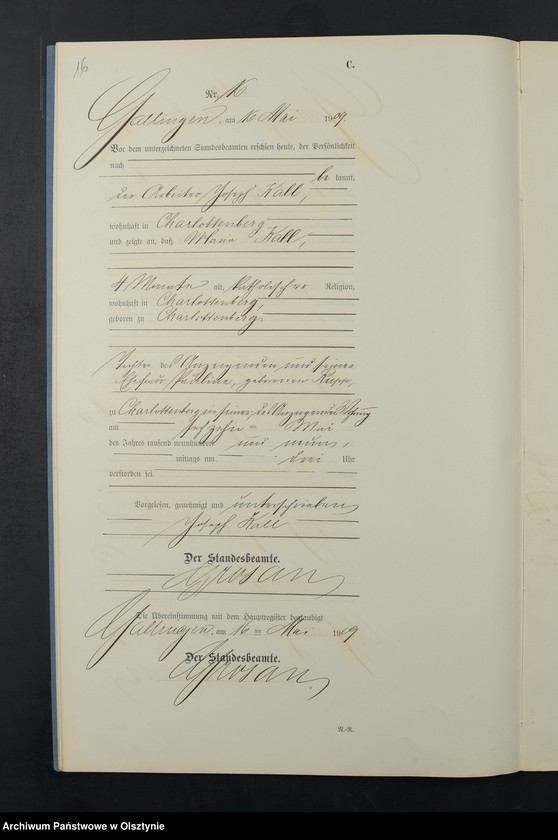 16
C.
Nr. 16.
Gallingen, am 16. Mai 1909.
Vor dem unterzeichneten Standesbeamten erschien heute, der Persönlichkeit
nach
be kannt,
der Arbeiter Joseph Kall,
wohnhaft in Charlottenberg
und zeigte an, daß Maria Kall,
4 Monate alt, katholischer Religion,
wohnhaft in Charlottenberg,
geboren zu Charlottenberg,
Tochter des Anzeigenden und seiner
Ehefrau Pauline, geborenen
zu Charlottenberg in seiner, des Anzeigenden Wohnung
am sechzehn ten Mai
des Jahres tausend neunhundert und neun,
mittags um drei Uhr
verstorben sei.
Vorgelesen, genehmigt und unterschrieben
Joseph Kall
Der Standesbeamte.
Grosan
Die Übereinstimmung mit dem Hauptregister beglaubigt
Gallingen, am 16 ten Mai 1909
Der Standesbeamte.
Grosan.
N.-R.
Archiwum Państwowe w Olsztynie